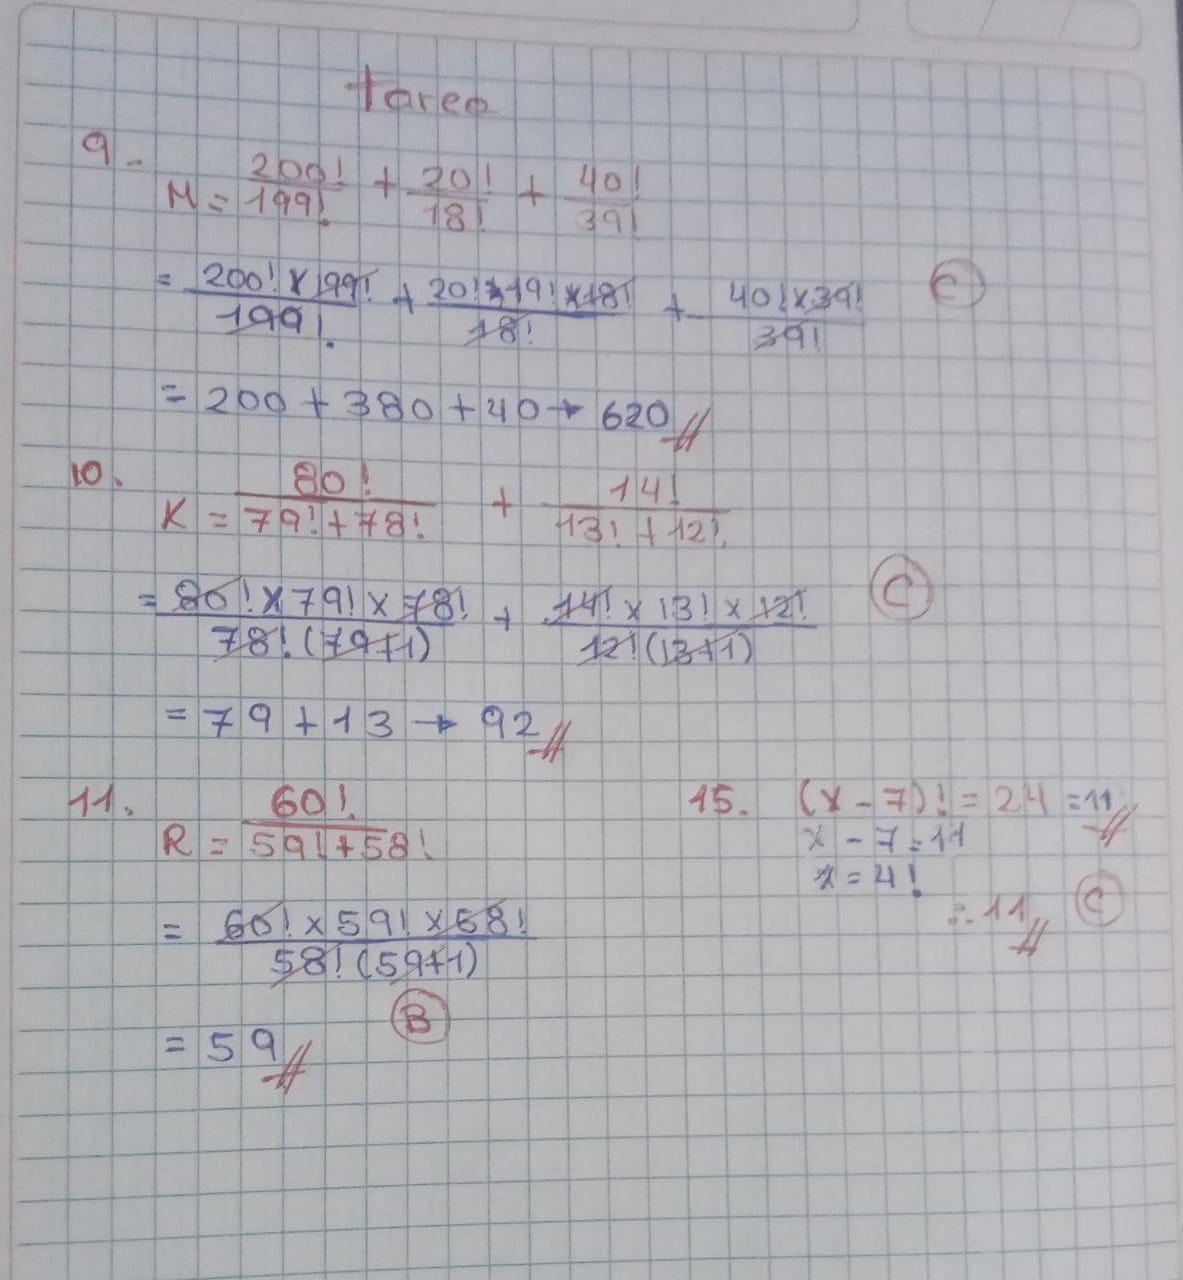 tarea
9- M = 200!/199! + 20!/18! + 40!/39!
= 200! x 199!/199! + 20! x 19! x 18!/18! + 40! x 39!/39!
= 200 + 380 + 40 → 620
10. K = 80!/79! + 78! + 14!/13! + 12!
= 80! x 79! x 78!/78! (79+1) + 14! x 13! x 12!/12! (13+1) C
= 79 + 13 → 92
11. R = 60!/59! + 58!
= 60! x 59! x 58!/58! (59+1)
= 59 B
15. (x - 7)! = 24 = 11
x - 7 = 11
x = 4!
∴ 11 C